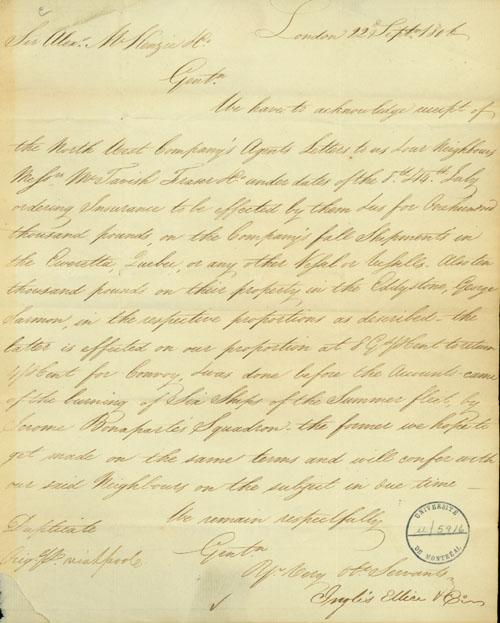 London 22d Septr. 1806
Sir Alexr. McKenzie &c.
Gentn
We have to acknowledge receipt of
the North West Company's Agents Letters to us & our Neighbours
Messrs McTavish Fraser &c under dates of the & 14th July
ordering Insurance to be effected by them & us for Onehundred
thousand pounds, on the Company's fall Shipments in
the Everetta, Quebec, or any other Vessel or Vessells. Also ten
thousand pounds on their property in the Eddystone, George
Sarmon, in the respective proportions as described - the
latter is effected on our proportion at 8 G to return
for Convoy, & was done before the Accounts came
of the burning of Six Ships of the Summer fleet, by
Jerome Bonaparte's Squadron - the former we hope to
get made on the same terms and will confer with
our said Neighbours on the subject in due time -
We remain respectfully
Gentn
Yr. Very Ob. Servants
Inglis Ellice & Co
Duplicate
Orig.
UNIVERSITÉ
DE MONTRÉAL